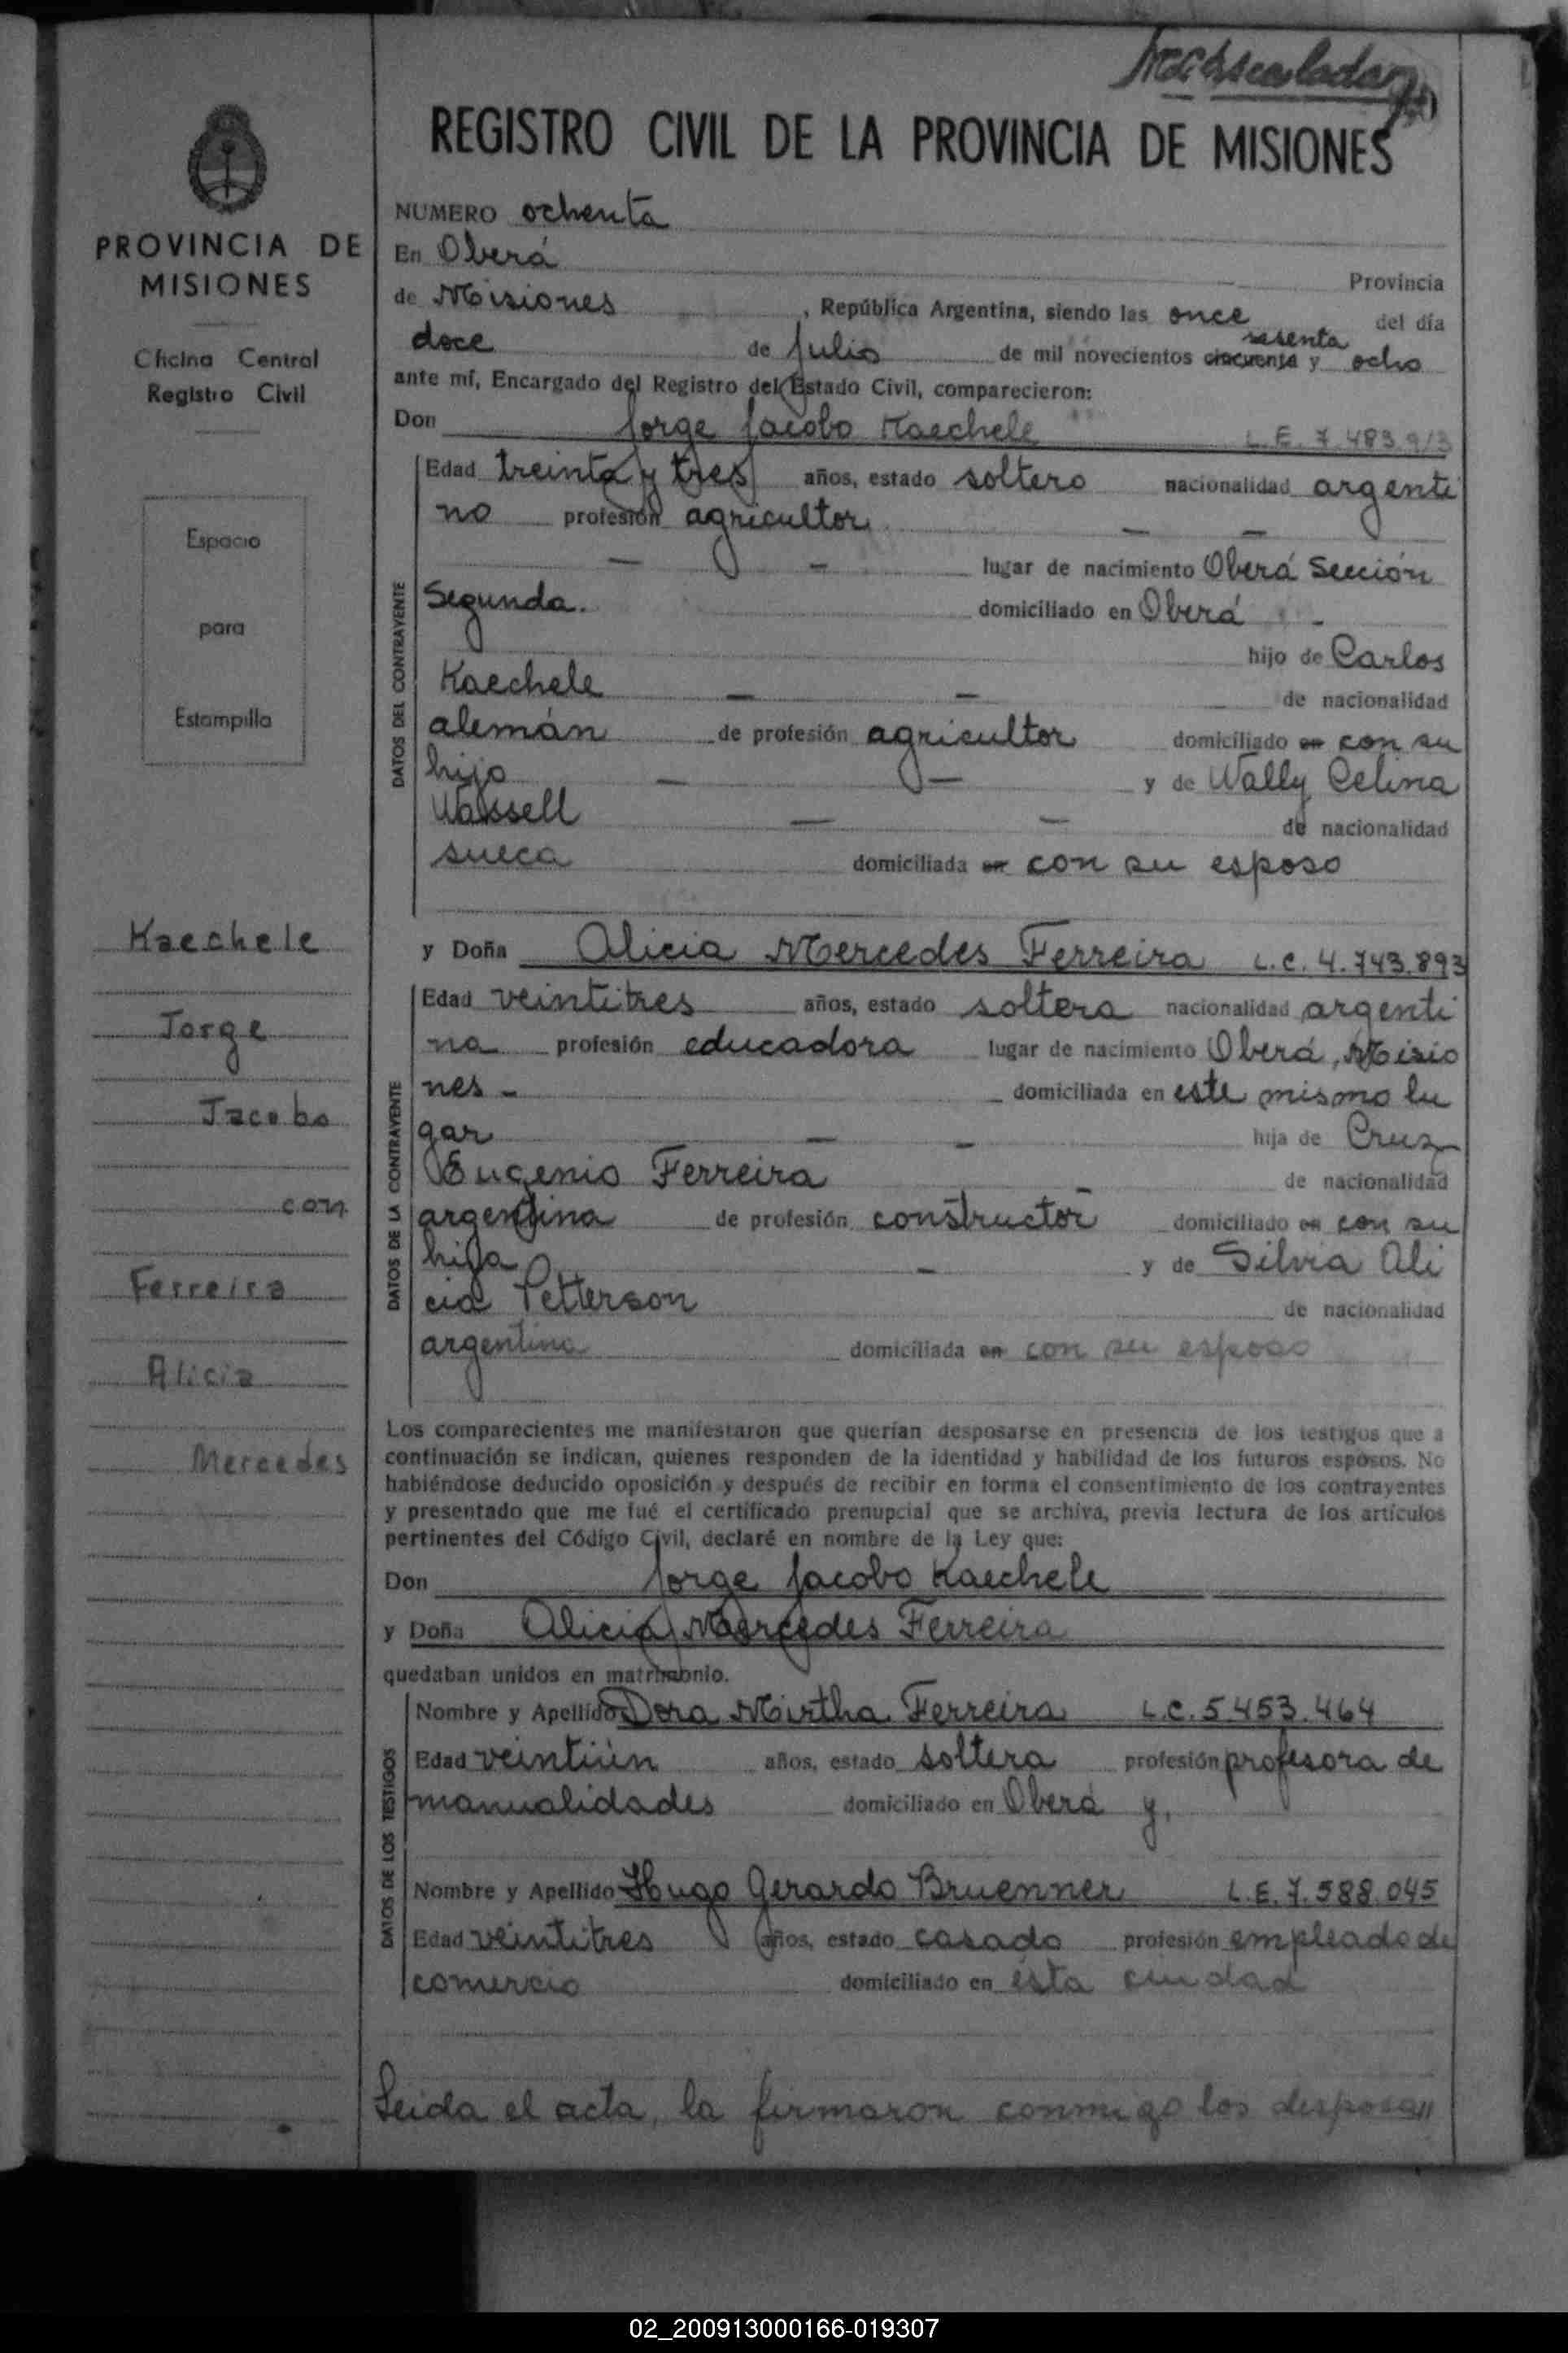 REGISTRO CIVIL DE LA PROVINCIA DE MISIONES
PROVINCIA DE
MISIONES
Oficina Central
Registro Civil
Espacio
para
Estampilla
Kaechele
Jorge
Jacobo
con
Ferreira
Alicia
Mercedes
NUMERO ochenta
En Oberá
Provincia
de Misiones, República Argentina, siendo las once del día
sesenta
doce de julio de mil novecientos cincuenta y ocho
ante mí, Encargado del Registro del Estado Civil, comparecieron:
Don Jorge Jacobo Kaechele L.E. 7.483.913
DATOS DEL CONTRAYENTE
Edad treinta y tres años, estado soltero nacionalidad argenti
no profesión agricultor — —
— — lugar de nacimiento Oberá Sección
Segunda. domiciliado en Oberá -
hijo de Carlos
Kaechele — — de nacionalidad
alemán de profesión agricultor domiciliado en con su
hijo — — y de Wally Celina
Wassell — — de nacionalidad
sueca domiciliada en con su esposo
y Doña Alicia Mercedes Ferreira L.C. 4.743.893
DATOS DE LA CONTRAYENTE
Edad veintitres años, estado soltera nacionalidad argenti
na profesión educadora lugar de nacimiento Oberá, Misio
nes - domiciliada en este mismo lu
gar — — hija de Cruz
Eugenio Ferreira — de nacionalidad
argentina de profesión constructor domiciliado en con su
hija — y de Silvia Ali
cia Petterson de nacionalidad
argentina domiciliada en con su esposo
Los comparecientes me manifestaron que querían desposarse en presencia de los testigos que a
continuación se indican, quienes responden de la identidad y habilidad de los futuros esposos. No
habiéndose deducido oposición y después de recibir en forma el consentimiento de los contrayentes
y presentado que me fué el certificado prenupcial que se archiva, previa lectura de los artículos
pertinentes del Código Civil, declaré en nombre de la Ley que:
Don Jorge Jacobo Kaechele
y Doña Alicia Mercedes Ferreira
quedaban unidos en matrimonio.
DATOS DE LOS TESTIGOS
Nombre y Apellido Dora Mirtha Ferreira L.C. 5.453.464
Edad veintiún años, estado soltera profesión profesora de
manualidades domiciliado en Oberá y,
Nombre y Apellido Hugo Gerardo Bruenner L.E. 7.588.045
Edad veintitres años, estado casado profesión empleado de
comercio domiciliado en ésta ciudad
Leida el acta, la firmaron conmigo los desposa
02_200913000166-019307